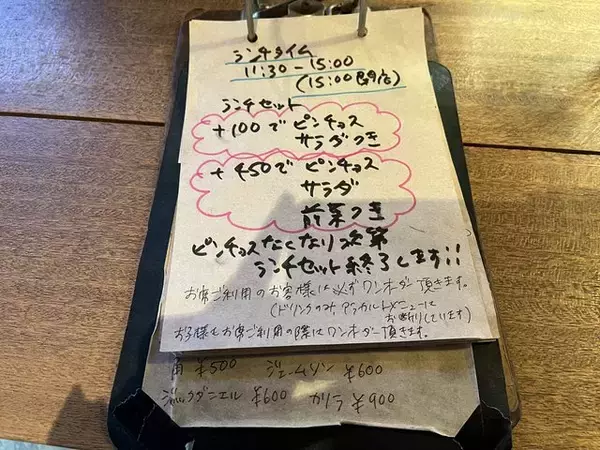 ランチタイム
11:30-15:00
(15:00閉店)
ランチセット
+100で ピンチョス
サラダつき
+450で ピンチョス
サラダ
前菜つき
ピンチョスなくなり次第
ランチセット終了します!!
お席ご利用のお客様は必ずワンオーダー頂きます。
(ドリンクのみ、アラカルトメニューは
お断りしています)
お子様もお席ご利用の際はワンオーダー頂きます。
角 ¥500 ジェームソン ¥600
ジャックダニエル ¥600 カリラ ¥900